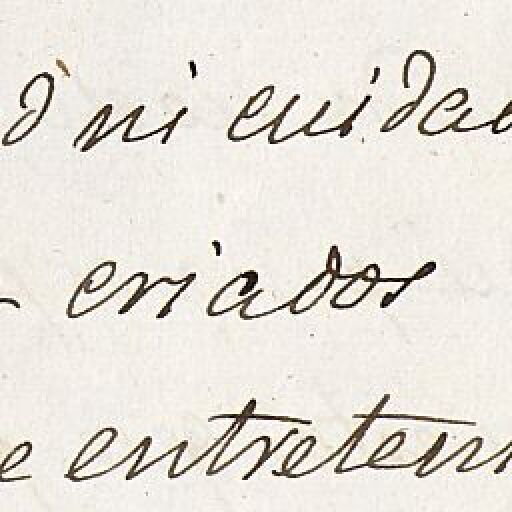 d ni cuida
criados
e entreten